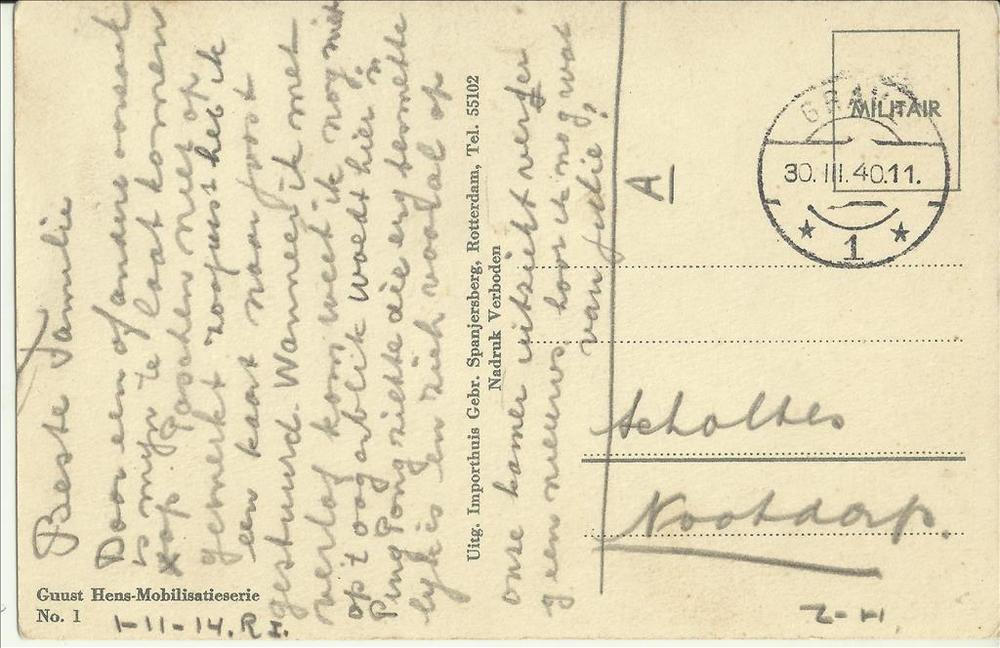 Beste Familie
Door een of andere oorzaak
is myn te laat komen
op Paschen niet op
gemerkt zogous heb ik
een kaart naar Joost
gestuurd. Wanneer ik met
verlof kom weet ik nog niet
op 't oogenblik woedt hier 'n
Ping Pong ziekte die erg besmette
lyk is en zich vooral op
onze kamer uitziekt verder
geen nieuws. hoor ik nog wat
van jullie?
Uitg. Importhuis Gebr. Spanjersberg, Rotterdam, Tel. 55102
Nadruk Verboden
Guust Hens-Mobilisatieserie
No. 1
1-11-14. R
A
MILITAIR
GRAVE
30.III.40.11.
1
Scholtes
Nootdorp.
2-H